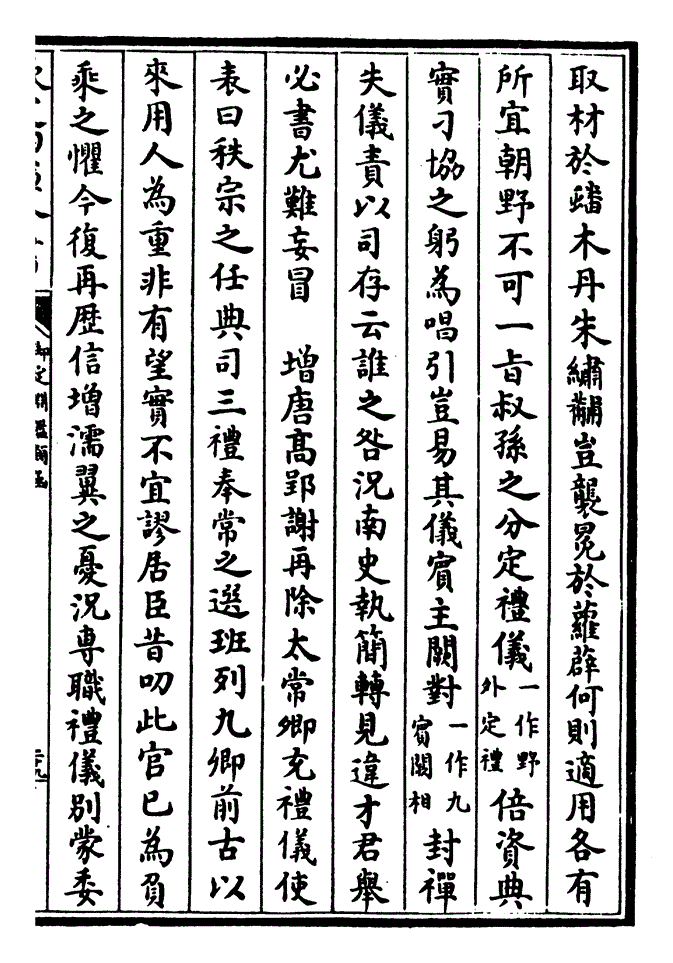 取材於蟠木丹朱繡黼豈襲冕於蘿薜何則適用各有
所宜朝野不可一㫖叔孫之分定禮儀一作野外定禮倍資典
實刁協之躬為唱引豈易其儀賓主闕對一作九賓闕相封禪
失儀責以司存云誰之咎況南史執簡轉見違才君舉
必書尤難妄冒　增唐髙郢謝再除太常卿充禮儀使
表曰秩宗之任典司三禮奉常之選班列九卿前古以
來用人為重非有望實不宜謬居臣昔叨此官已為負
乘之懼今復再歴信增濡翼之憂況専職禮儀别蒙委
御定淵鑑類函